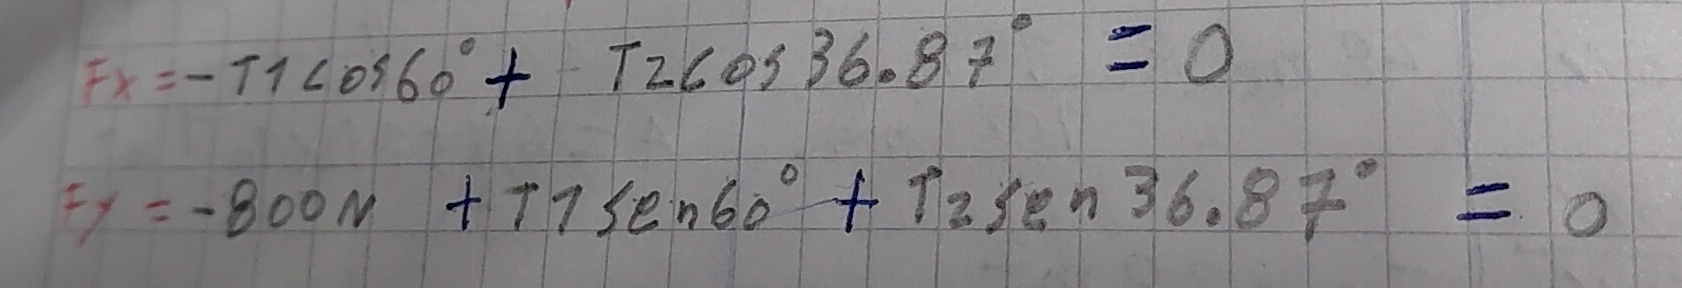 Fx = - T1 cos60° + T2 cos 36.87° = 0
Fy = -800N + T1 sen60° + T2 sen 36.87° = 0